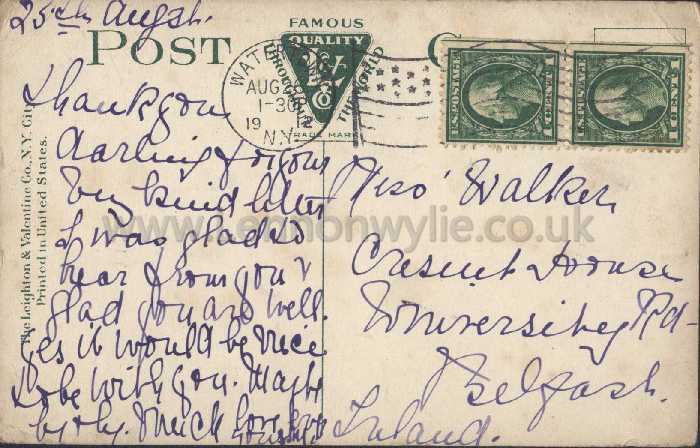 25th Augst.
POST C
FAMOUS
QUALITY
THROUGHOUT THE WORLD
TRADE MARK
WATER N.Y.
AUG 28
1-30
19 12
U.S. POSTAGE
1 CENT 1
U.S. POSTAGE
1 CENT 1
The Leighton & Valentine Co., N.Y. City
Printed in United States.
Thank you
darling for your
very kind letter
I was glad to
hear from you &
glad you are well.
Yes it would be nice
to be with you. Maybe
by & by. Much love
Walker
Cresent House
University Rd-
Belfast.
Ireland.
www.lennonwylie.co.uk